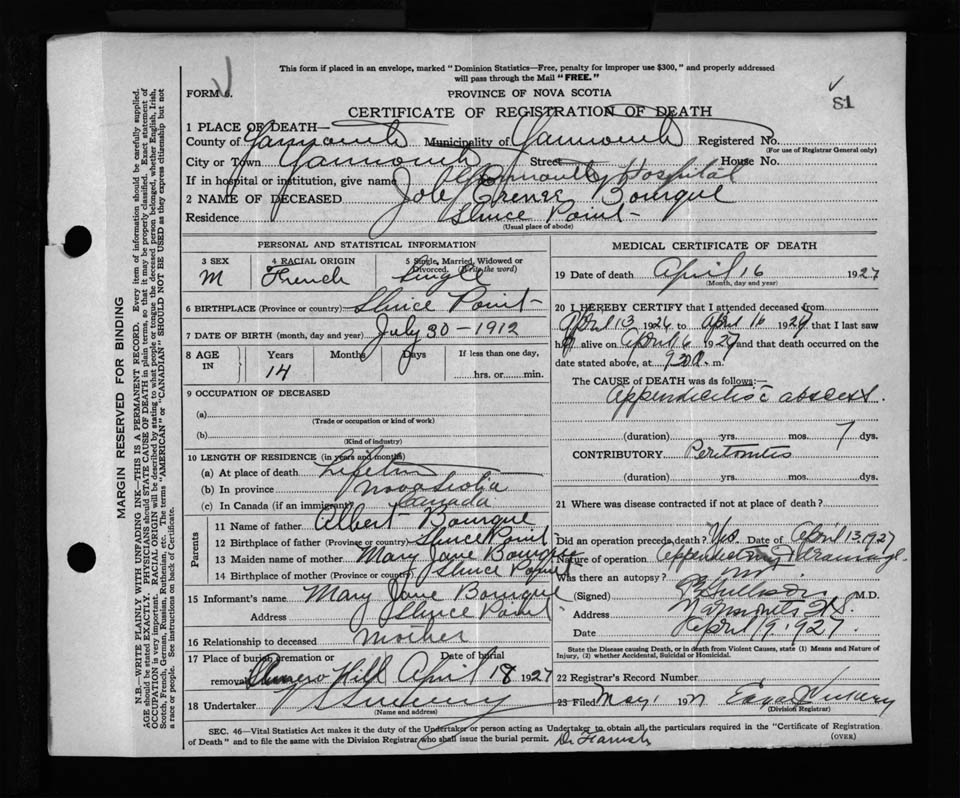 This form if placed in an envelope, marked "Dominion Statistics—Free, penalty for improper use $300," and properly addressed
will pass through the Mail "FREE."
FORM 6. PROVINCE OF NOVA SCOTIA
81
CERTIFICATE OF REGISTRATION OF DEATH
1 PLACE OF DEATH—
County of Yarmouth Municipality of Yarmouth Registered No.
(For use of Registrar General only)
City or Town Yarmouth Street House No.
If in hospital or institution, give name Yarmouth Hospital
2 NAME OF DECEASED Bourque
Residence Sluice Point
(Usual place of abode)
PERSONAL AND STATISTICAL INFORMATION
3 SEX 4 RACIAL ORIGIN 5 Single, Married, Widowed or
Divorced. (Write the word)
M French Single
6 BIRTHPLACE (Province or country) Sluice Point
7 DATE OF BIRTH (month, day and year) July 30 - 1912
8 AGE IN Years Months Days If less than one day,
14 hrs. or min.
9 OCCUPATION OF DECEASED
(a)
(Trade or occupation or kind of work)
(b)
(Kind of industry)
10 LENGTH OF RESIDENCE (in years and months)
(a) At place of death Lifetime
(b) In province Nova Scotia
(c) In Canada (if an immigrant) Canada
Parents
11 Name of father Albert Bourque
12 Birthplace of father (Province or country) Sluice Point
13 Maiden name of mother Mary Jane Bourque
14 Birthplace of mother (Province or country) Sluice Point
15 Informant's name Mary Jane Bourque
Address Sluice Point
16 Relationship to deceased Mother
17 Place of burial, cremation or Date of burial
removal Hill April 18 1927
18 Undertaker Sweeny
(Name and address)
MEDICAL CERTIFICATE OF DEATH
19 Date of death April 16 1927
(Month, day and year)
20 I HEREBY CERTIFY that I attended deceased from
April 13 192 to April 16 192 that I last saw
h alive on April 16 1927 and that death occurred on the
date stated above, at m.
The CAUSE of DEATH was as follows:—
Appendicitis c abscess.
(duration) yrs. mos. 7 dys.
CONTRIBUTORY Peritonitis
(duration) yrs. mos. dys.
21 Where was disease contracted if not at place of death?
Did an operation precede death? Yes Date of April 13 1927
Nature of operation Appendectomy & drainage
Was there an autopsy? No
(Signed) M.D.
Address Yarmouth N.S.
Date April 19 1927.
State the Disease causing Death, or in death from Violent Causes, state (1) Means and Nature of
Injury, (2) whether Accidental, Suicidal or Homicidal.
22 Registrar's Record Number
23 Filed May 192
(Division Registrar)
SEC. 46—Vital Statistics Act makes it the duty of the Undertaker or person acting as Undertaker to obtain all the particulars required in the "Certificate of Registration
of Death" and to file the same with the Division Registrar who shall issue the burial permit.
(OVER)
MARGIN RESERVED FOR BINDING
N.B.—WRITE PLAINLY WITH UNFADING INK—THIS IS A PERMANENT RECORD. Every item of information should be carefully supplied.
AGE should be stated EXACTLY. PHYSICIANS should STATE CAUSE OF DEATH in plain terms, so that it may be properly classified. Exact statement of
OCCUPATION is very important. RACIAL ORIGIN will be described by stating to what people or tongue the deceased person belonged, whether English, Irish,
Scotch, French, German, Russian, Ruthenian, etc. The terms "AMERICAN" or "CANADIAN" SHOULD NOT BE USED as they express citizenship but not
a race or people. See instructions on back of Certificate.